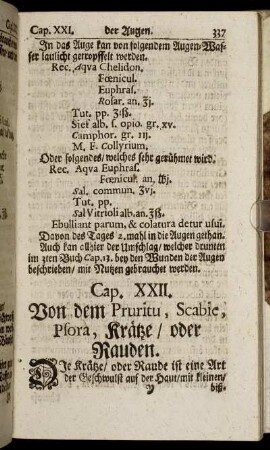 Cap. XXI. der Augen. 337
In das Auge kan von folgendem Augen-Was-
ser laulicht getropffelt werden.
Rec. Aqva Chelidon.
Fœnicul.
Euphras.
Rosar. an. ℥j.
Tut. pp. ʒiß.
Sief alb. s. opio. gr. xv.
Camphor. gr. iij.
M. F. Collyrium.
Oder folgendes/ welches sehr gerühmet wird.
Rec. Aqva Euphras.
Fœnicul. an. ℔j.
Sal. commun. ʒvj.
Tut. pp.
Sal Vitrioli alb. an. ℥ß.
Ebulliant parum, & colatura detur usui.
Davon des Tages 2. mahl in die Augen gethan.
Auch kan kühler der Umschlag/ welcher drunten
im 3ten Buch Cap. 13. bey den Wunden der Augen
beschrieben/ mit Nutzen gebrauchet werden.
Cap. XXII.
Von dem Pruritu, Scabie,
Psora, Krätze/ oder
Rauden.
DIe Krätze/ oder Raude ist eine Art
der Geschwulst auf der Haut/ mit kleinen/
Y biß-